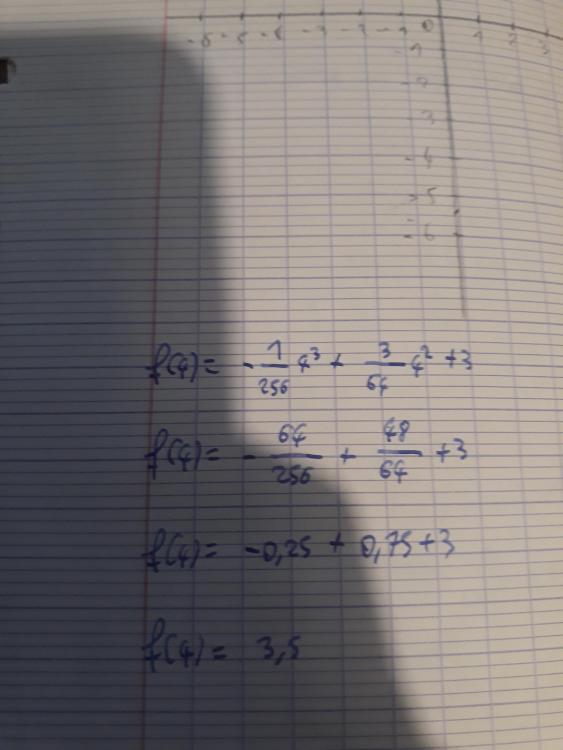 -6 -5 -4 -3 -2 -1 0 1 2 3
-1
-2
-3
-4
-5
-6
f(4) = -1/256 4³ + 3/64 4² + 3
f(4) = -64/256 + 48/64 + 3
f(4) = -0,25 + 0,75 + 3
f(4) = 3,5